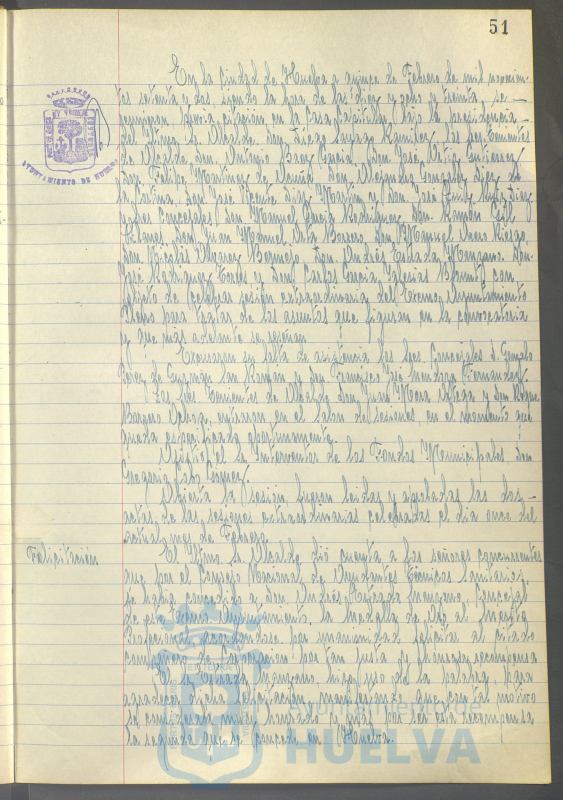 51
En la Ciudad de Huelva a quince de Febrero de mil novecien-
tos setenta y dos, siendo la hora de las diez y ocho treinta se
reunieron, previa citación, en la Casa Capitular, bajo la presidencia
del Iltmo. Sr. Alcalde, Don Diego Ramírez, los Sres. Tenientes
de Alcalde, Don Antonio Baez García, Don José Ortiz Gutiérrez,
Don Felipe Martínez de Acuña, Don Alejandro González Díez de
la Cortina, Don José Vicente Díaz Martín y Don José Díaz
y Sres. Concejales, Don Manuel García Rodríguez, Don Ramón Gil
Don Juan Manuel Orta Borrero, Don Manuel Riesgo,
Don Nicolás Álvarez Bermejo, Don Andrés Estrada Manzano, Don
José Rodríguez y Don Carlos García Iglesias con
objeto de celebrar sesión extraordinaria del Excmo. Ayuntamiento
Pleno para tratar de los asuntos que figuran en la convocatoria
y que más adelante se reseñan.
Excusaron su falta de asistencia los Sres. Concejales D. Gonzalo
Pérez de Guzmán San Román y Don Francisco José Mendoza Fernández.
Los Sres. Tenientes de Alcalde Don Juan Mora y Don Roque
Barrero entraron en el salón de sesiones en el momento que
queda especificado oportunamente.
Asistió el Sr. Interventor de los Fondos Municipales, Don
Gregorio Gómez.
Abierta la sesión, fueron leidas y aprobadas las dos
actas de las sesiones extraordinarias celebradas el día once del
actual mes de Febrero.
Felicitación
El Iltmo. Sr. Alcalde dió cuenta a los señores concurrentes
que por el Consejo Nacional de Ayudantes Técnicos Sanitarios,
se había concedido a Don Andrés Estrada Manzano, Concejal
de este Excmo. Ayuntamiento, la Medalla de Oro al Mérito
Profesional, acordándose por unanimidad felicitar al citado
compañero de Corporación por tan justa y recompensa.
El Sr. Estrada Manzano hizo uso de la palabra, para
agradecer dicha felicitación manifestando que con tal motivo
se consideraba muy honrado y más por ser esta recompensa
la segunda que se concede en Huelva.
AYUNTAMIENTO DE HUELVA
Ayuntamiento de
HUELVA